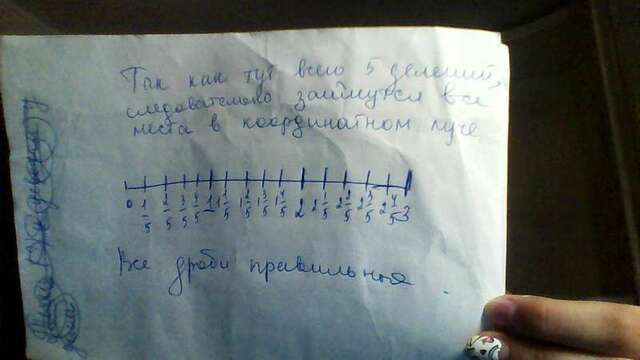 Так как тут всего 5 делений,
следовательно займутся все
места в координатном луче
0 1/5 2/5 3/5 4/5 1 1 1/5 1 2/5 1 3/5 1 4/5 2 2 1/5 2 2/5 2 3/5 2 4/5 3
Все дроби правильные.